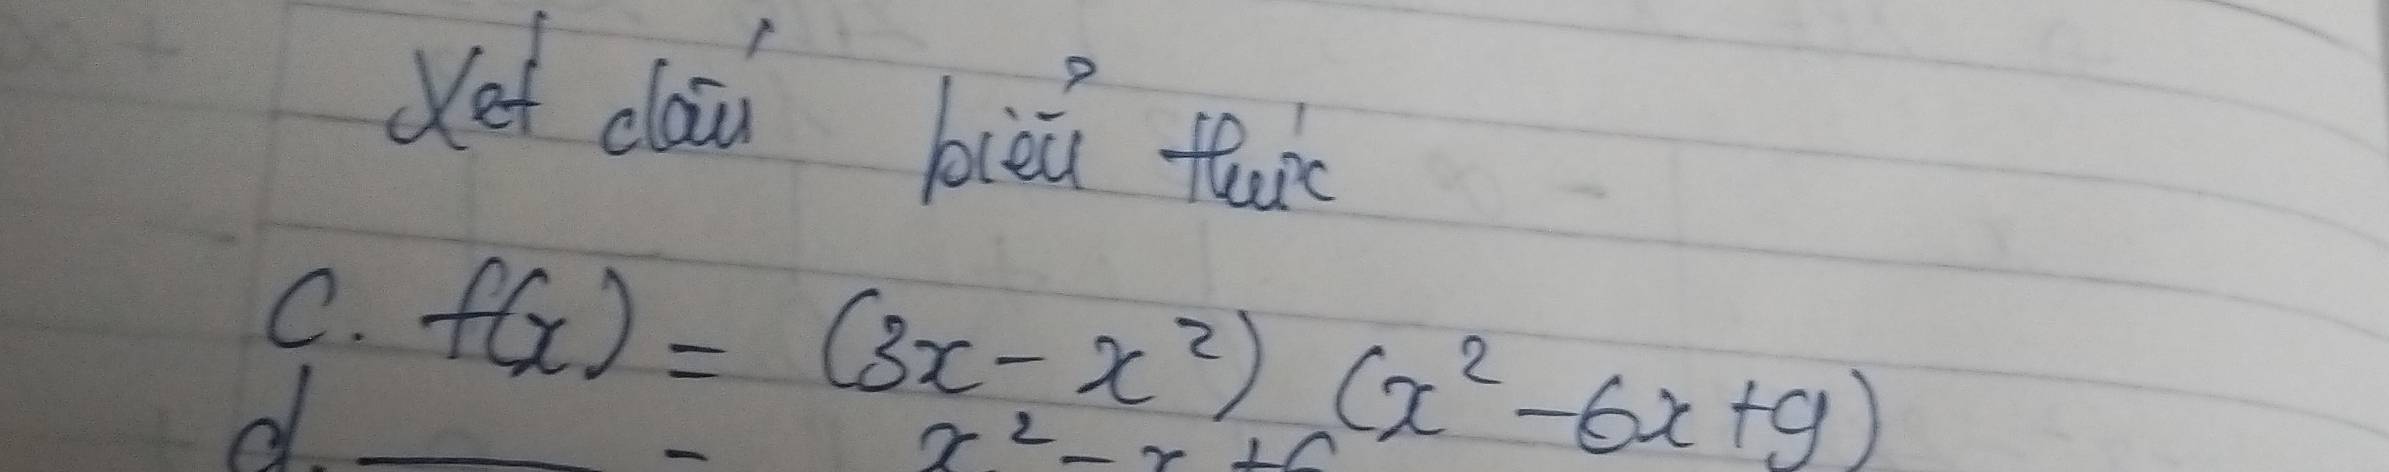 Xét dấu biểu thức
c. f(x) = (3x - x²) (x² - 6x + 9)
d. — - x² - x + 6